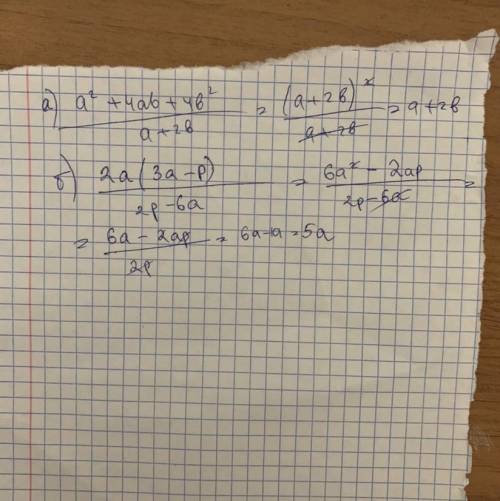 а) a² + 4ab + 4b² / a + 2b = (a + 2b)² / a + 2b = a + 2b
б) 2a(3a - p) / 2p - 6a = 6a² - 2ap / 2p - 6a =
= 6a - 2ap / 2p = 6a - a = 5a